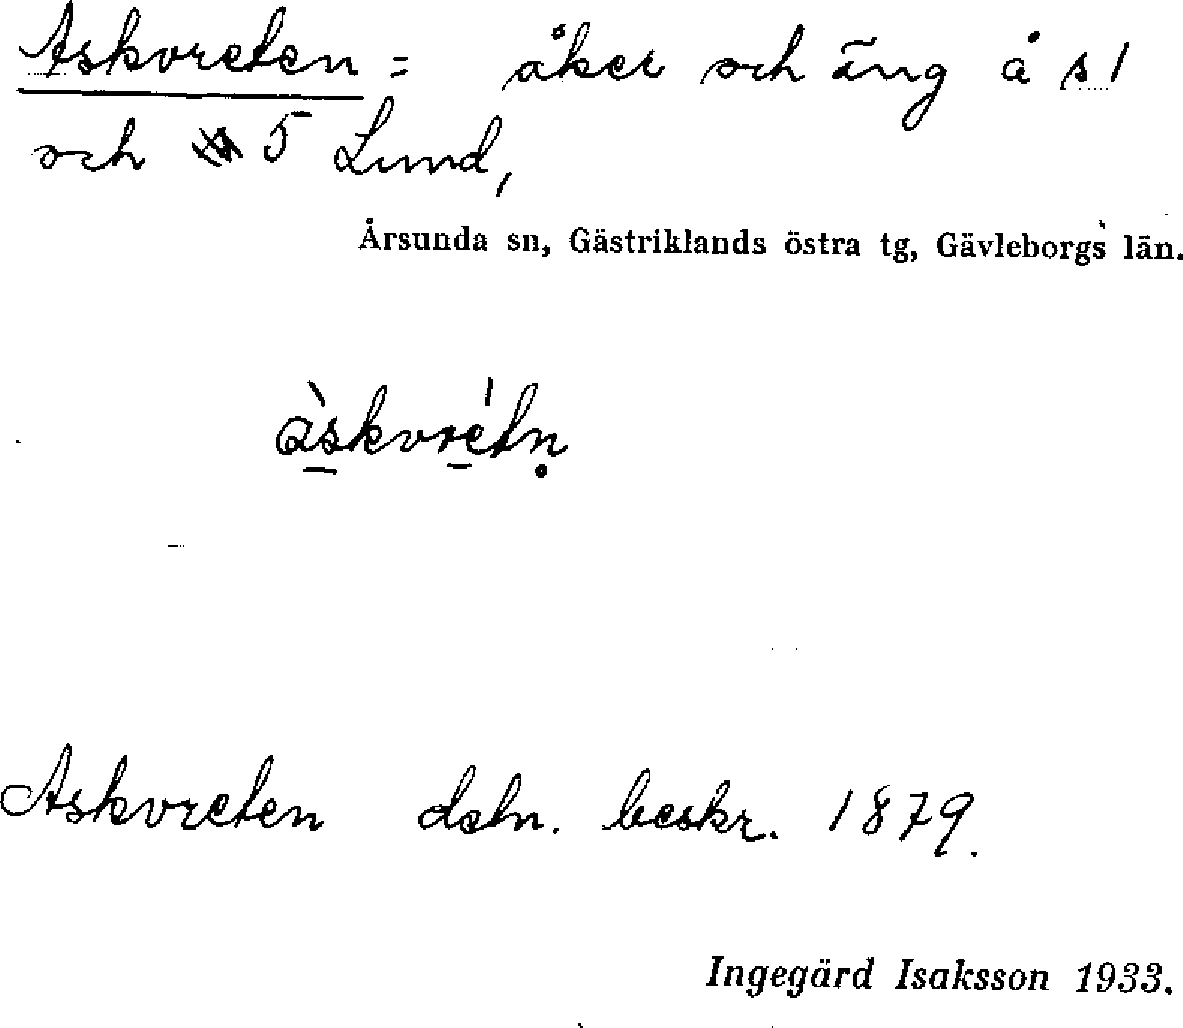 Askvreten = åker och äng å s 1
och 5 Lund,
Årsunda sn, Gästriklands östra tg, Gävleborgs län.
àskvrétn̥
Askvreten dsbn. beskr. 1879.
Ingegärd Isaksson 1933.